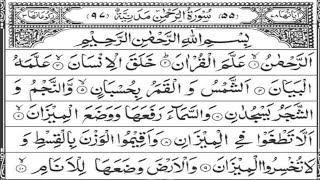 (٥٥) سُوْرَةُ الرَّحْمٰنِ مَدَنِيَّةٌ (٩٧)
بِسْمِ اللّٰهِ الرَّحْمٰنِ الرَّحِيْمِ
اَلرَّحْمٰنُ ۙ عَلَّمَ الْقُرْاٰنَ ؕ خَلَقَ الْاِنْسَانَ ۙ عَلَّمَهُ
الْبَيَانَ اَلشَّمْسُ وَ الْقَمَرُ بِحُسْبَانٍ ۪ وَّالنَّجْمُ وَ
الشَّجَرُ يَسْجُدٰنِ وَالسَّمَآءَ رَفَعَهَا وَوَضَعَ الْمِيْزَانَ ۙ
اَلَّا تَطْغَوْا فِى الْمِيْزَانِ وَاَقِيْمُوا الْوَزْنَ بِالْقِسْطِ وَ
لَا تُخْسِرُوا الْمِيْزَانَ وَالْاَرْضَ وَضَعَهَا لِلْاَنَامِ ۙ